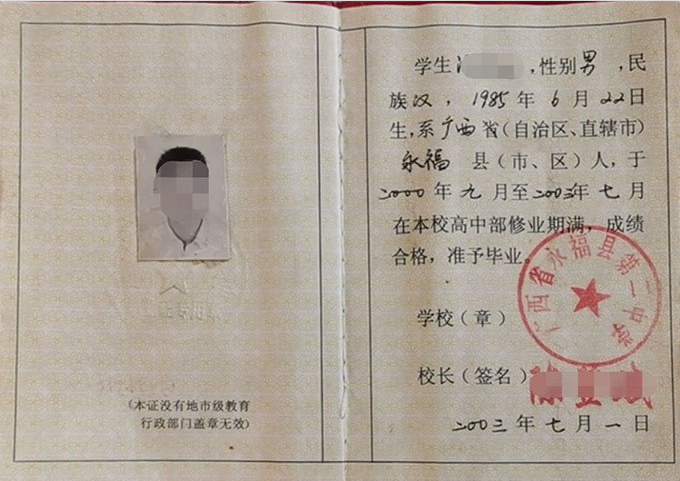 (本证没有地市级教育
行政部门盖章无效)
学生 ,性别男,民
族汉,1985年6月22日
生,系广西省(自治区、直辖市)
永福县(市、区)人,于
二000年九月至二00三年七月
在本校高中部修业期满,成绩
合格,准予毕业。
广西省永福县第二中学
学校(章)
校长(签名)
二00三年七月一日